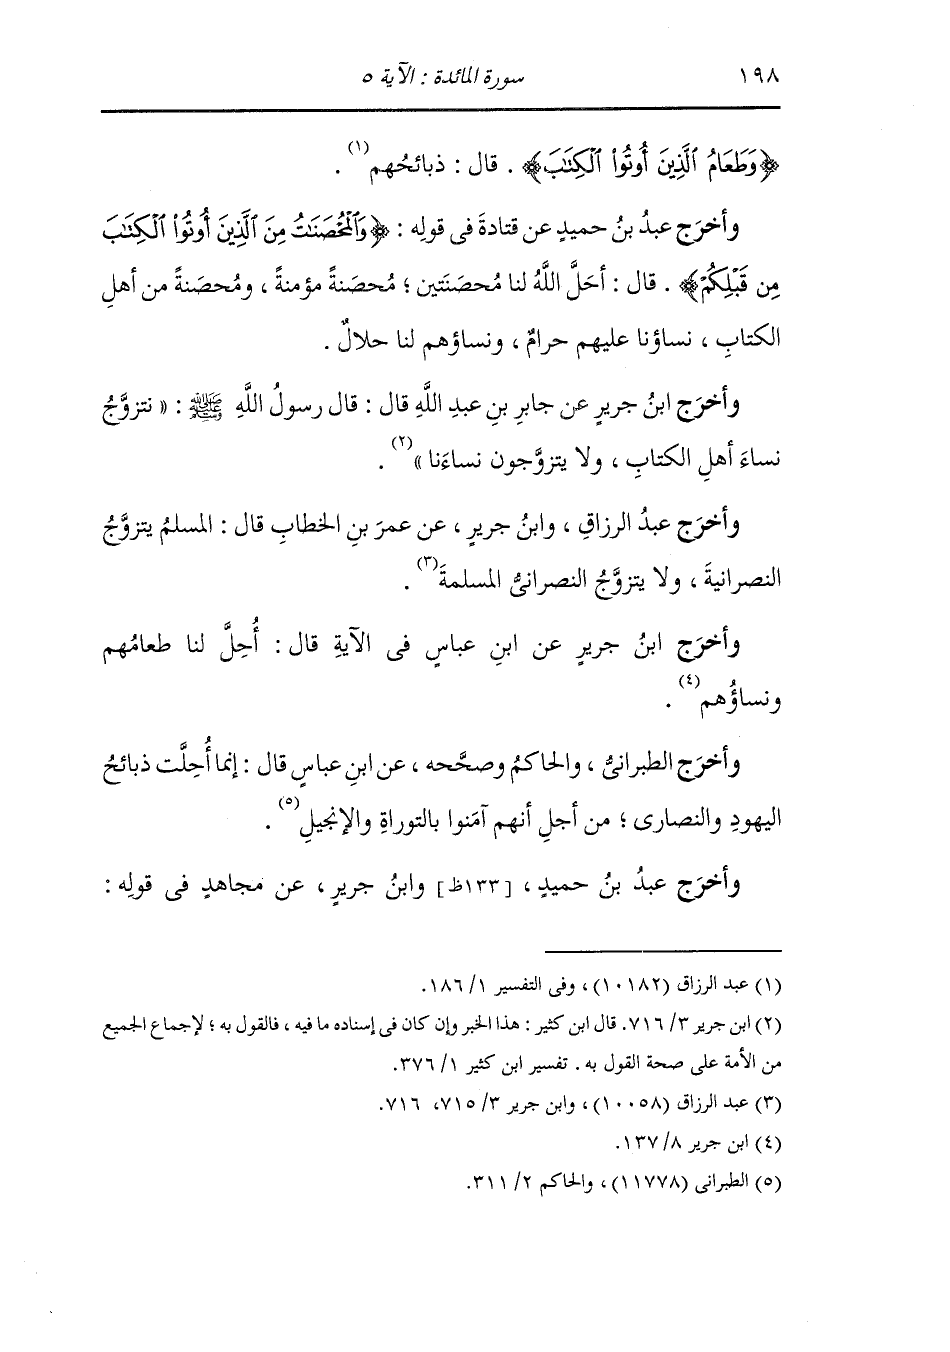 ١٩٨ سورة المائدة : الآية ٥
﴿وَطَعَامُ ٱلَّذِينَ أُوتُوا۟ ٱلْكِتَٰبَ﴾ . قال : ذبائحُهم(١) .
وأخرَج عبدُ بنُ حميدٍ عن قتادةَ فى قولِه : ﴿وَٱلْمُحْصَنَٰتُ مِنَ ٱلَّذِينَ أُوتُوا۟ ٱلْكِتَٰبَ
مِن قَبْلِكُمْ﴾ . قال : أحَلَّ اللَّهُ لنا مُحصَنَتين ؛ مُحصَنةً مؤمنةً ، ومُحصَنةً من أهلِ
الكتابِ ، نساؤنا عليهم حرامٌ ، ونساؤهم لنا حلالٌ .
وأخرَج ابنُ جريرٍ عن جابرِ بنِ عبدِ اللَّهِ قال : قال رسولُ اللَّهِ ﷺ : « نتزوَّجُ
نساءَ أهلِ الكتابِ ، ولا يتزوَّجون نساءَنا »(٢) .
وأخرَج عبدُ الرزاقِ ، وابنُ جريرٍ ، عن عمرَ بنِ الخطابِ قال : المسلمُ يتزوَّجُ
النصرانيةَ ، ولا يتزوَّجُ النصرانىُّ المسلمةَ(٣) .
وأخرَج ابنُ جريرٍ عن ابنِ عباسٍ فى الآيةِ قال : أُحِلَّ لنا طعامُهم
ونساؤُهم(٤) .
وأخرَج الطبرانىُّ ، والحاكمُ وصحَّحه ، عن ابنِ عباسٍ قال : إنما أُحِلَّت ذبائحُ
اليهودِ والنصارى ؛ من أجلِ أنهم آمَنوا بالتوراةِ والإنجيلِ(٥) .
وأخرَج عبدُ بنُ حميدٍ ، [١٣٣ظ] وابنُ جريرٍ ، عن مجاهدٍ فى قولِه :
(١) عبد الرزاق (١٠١٨٢) ، وفى التفسير ١/ ١٨٦.
(٢) ابن جرير ٣/ ٧١٦. قال ابن كثير : هذا الخبر وإن كان فى إسناده ما فيه ، فالقول به ؛ لإجماع الجميع
من الأمة على صحة القول به . تفسير ابن كثير ١/ ٣٧٦.
(٣) عبد الرزاق (١٠٠٥٨) ، وابن جرير ٣/ ٧١٥، ٧١٦.
(٤) ابن جرير ٨/ ١٣٧.
(٥) الطبرانى (١١٧٧٨) ، والحاكم ٢/ ٣١١.